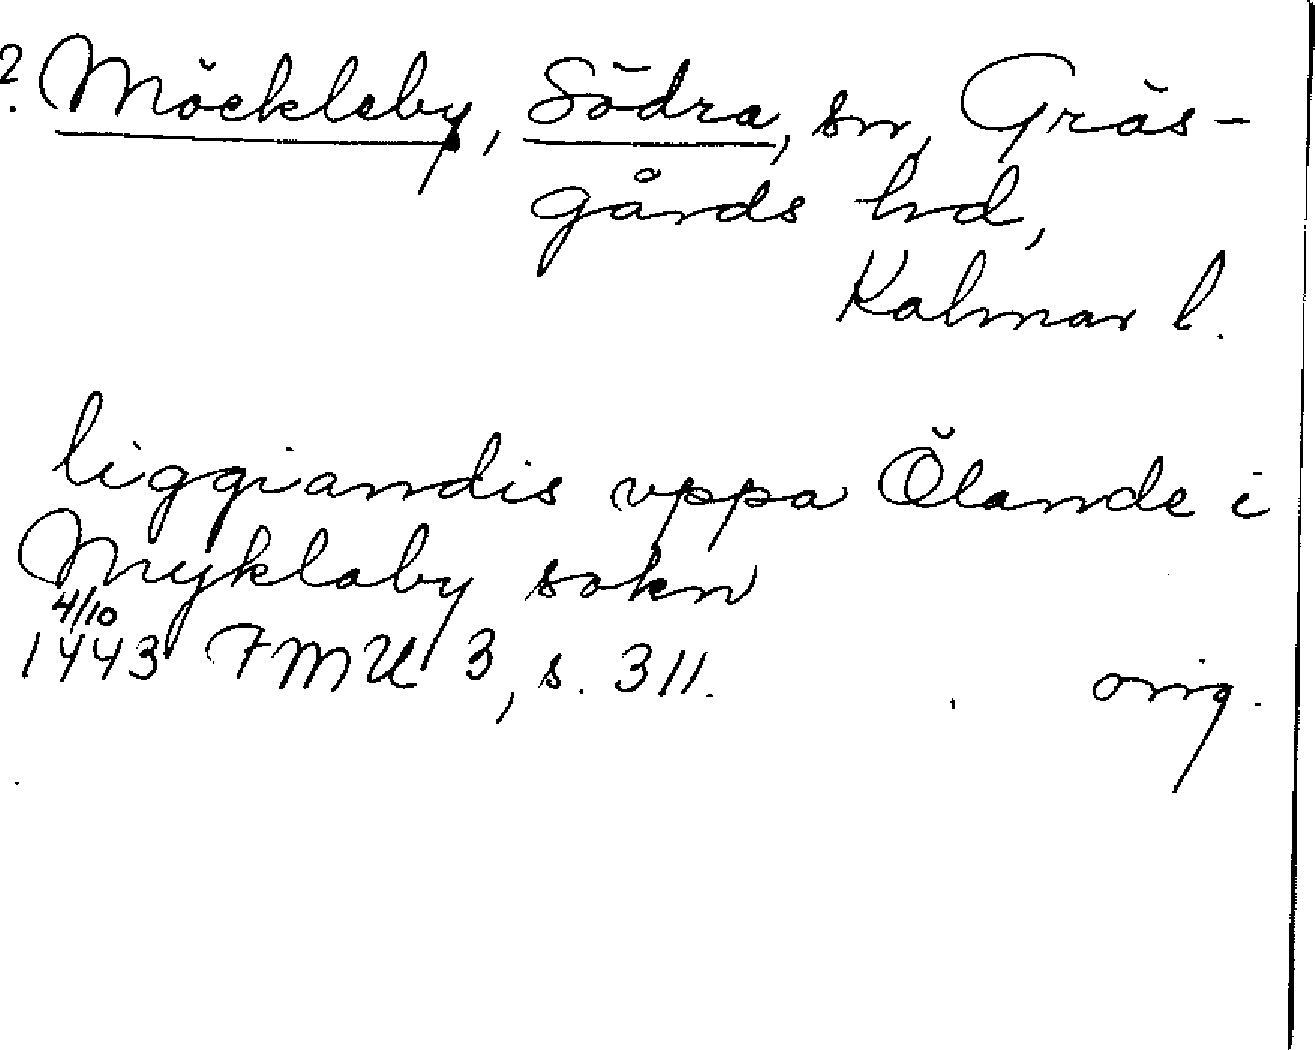 ? Möckleby, Södra, sn, Gräs-
gårds hd,
Kalmar l.
liggiandis vppa Ölande i
Myklaby sokn
4/10
1443 FMU 3, s. 311. orig.